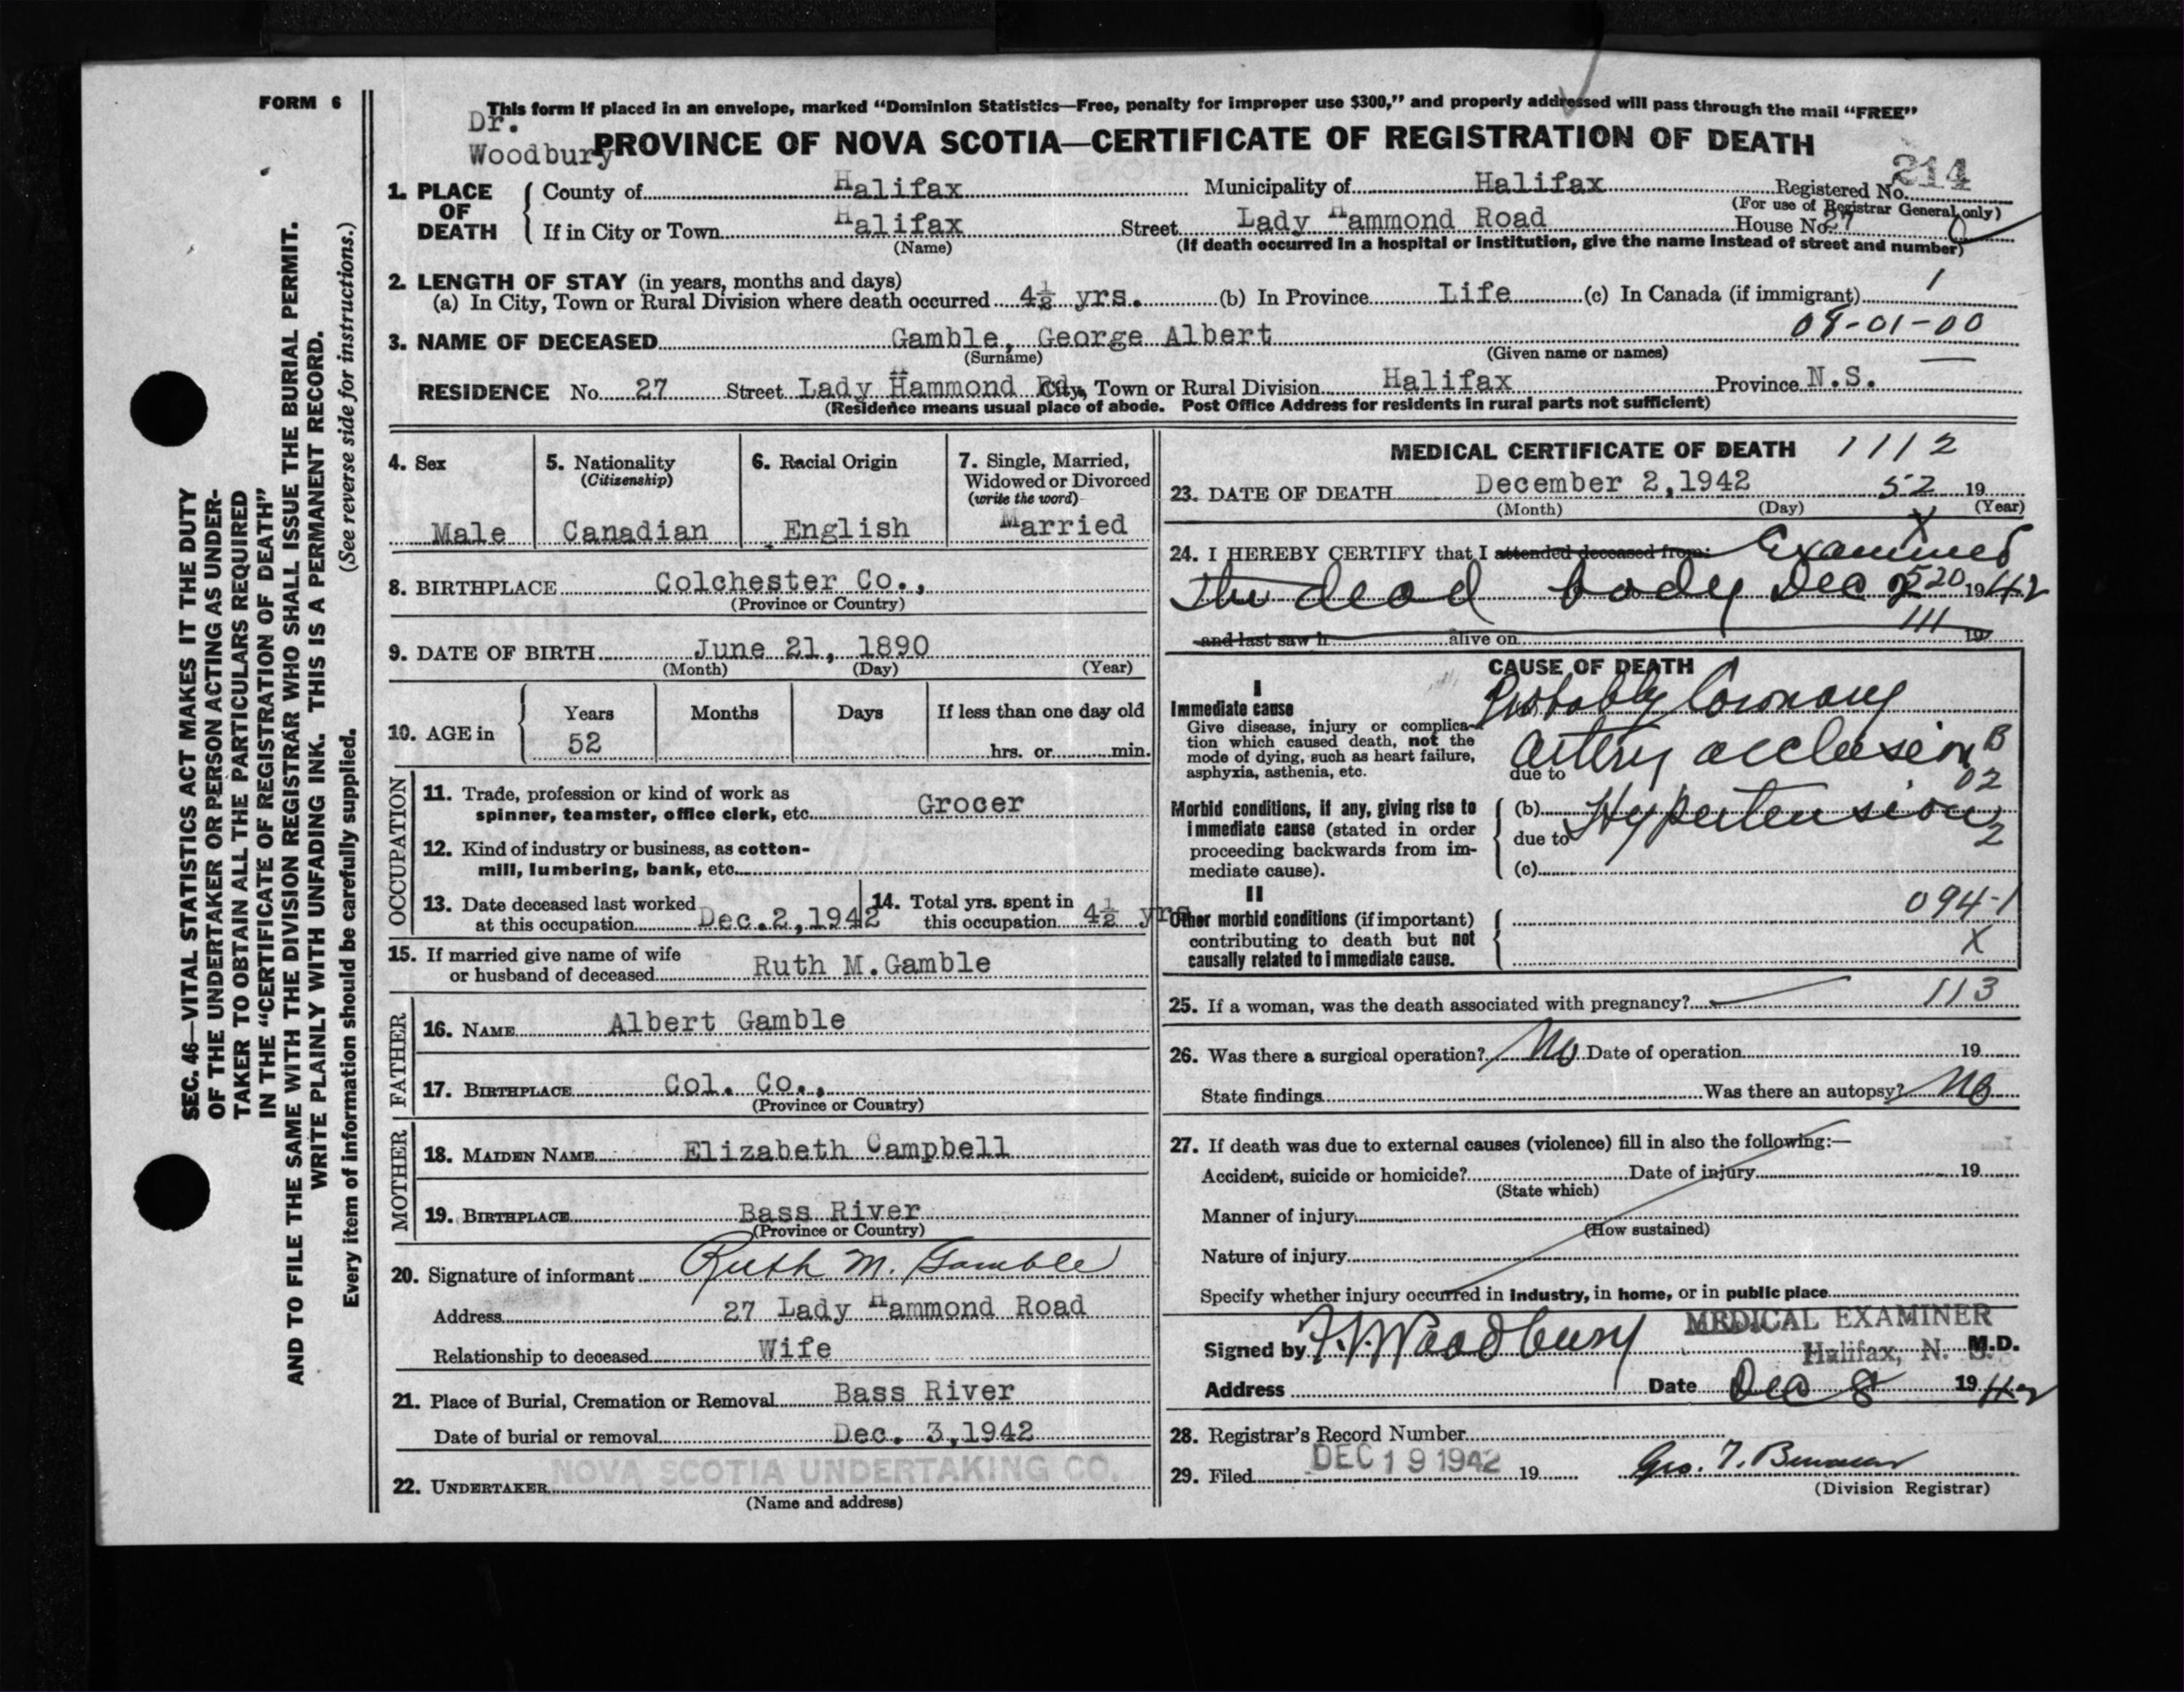 FORM 6
This form if placed in an envelope, marked "Dominion Statistics—Free, penalty for improper use $300," and properly addressed will pass through the mail "FREE"
Dr.
Woodbury
PROVINCE OF NOVA SCOTIA—CERTIFICATE OF REGISTRATION OF DEATH
214
1. PLACE OF DEATH
County of Halifax Municipality of Halifax Registered No.
(For use of Registrar General only)
If in City or Town Halifax Street Lady Hammond Road House No. 27
(Name) (If death occurred in a hospital or institution, give the name instead of street and number)
2. LENGTH OF STAY (in years, months and days)
(a) In City, Town or Rural Division where death occurred 4½ yrs. (b) In Province Life (c) In Canada (if immigrant) 1
08-01-00
3. NAME OF DECEASED Gamble, George Albert
(Surname) (Given name or names)
RESIDENCE No. 27 Street Lady Hammond Rd. City, Town or Rural Division Halifax Province N.S.
(Residence means usual place of abode. Post Office Address for residents in rural parts not sufficient)
4. Sex
Male
5. Nationality
(Citizenship)
Canadian
6. Racial Origin
English
7. Single, Married,
Widowed or Divorced
(write the word)
Married
8. BIRTHPLACE Colchester Co.,
(Province or Country)
9. DATE OF BIRTH June 21, 1890
(Month) (Day) (Year)
10. AGE in
Years Months Days If less than one day old
52 hrs. or min.
OCCUPATION
11. Trade, profession or kind of work as
spinner, teamster, office clerk, etc. Grocer
12. Kind of industry or business, as cotton-
mill, lumbering, bank, etc.
13. Date deceased last worked
at this occupation Dec. 2, 1942
14. Total yrs. spent in
this occupation 4½ yrs
15. If married give name of wife
or husband of deceased Ruth M. Gamble
FATHER
16. NAME Albert Gamble
17. BIRTHPLACE Col. Co.,
(Province or Country)
MOTHER
18. MAIDEN NAME Elizabeth Campbell
19. BIRTHPLACE Bass River
(Province or Country)
20. Signature of informant Ruth M. Gamble
Address 27 Lady Hammond Road
Relationship to deceased Wife
21. Place of Burial, Cremation or Removal Bass River
Date of burial or removal Dec. 3, 1942
22. UNDERTAKER NOVA SCOTIA UNDERTAKING CO.
(Name and address)
MEDICAL CERTIFICATE OF DEATH 1112
23. DATE OF DEATH December 2, 1942 52 19
(Month) (Day) (Year)
X
24. I HEREBY CERTIFY that I attended deceased from: Examined
the dead body Dec 2 520 1942
111
and last saw h alive on 19
CAUSE OF DEATH
I
Immediate cause Probably Coronary
Give disease, injury or complica-
tion which caused death, not the
mode of dying, such as heart failure,
asphyxia, asthenia, etc.
artery occlusion B
due to 02
Morbid conditions, if any, giving rise to
immediate cause (stated in order
proceeding backwards from im-
mediate cause).
(b) Hypertension
due to 2
(c)
II
094-1
Other morbid conditions (if important)
contributing to death but not
causally related to immediate cause.
X
25. If a woman, was the death associated with pregnancy? 113
26. Was there a surgical operation? No Date of operation 19
State findings Was there an autopsy? No
27. If death was due to external causes (violence) fill in also the following:—
Accident, suicide or homicide? Date of injury 19
(State which)
Manner of injury
(How sustained)
Nature of injury
Specify whether injury occurred in industry, in home, or in public place
MEDICAL EXAMINER
Signed by Woodbury Halifax, N. S. M.D.
Address Date Dec 8 1942
28. Registrar's Record Number
29. Filed DEC 19 1942 19 Geo. T.
(Division Registrar)
SEC. 46—VITAL STATISTICS ACT MAKES IT THE DUTY
OF THE UNDERTAKER OR PERSON ACTING AS UNDER-
TAKER TO OBTAIN ALL THE PARTICULARS REQUIRED
IN THE "CERTIFICATE OF REGISTRATION OF DEATH"
AND TO FILE THE SAME WITH THE DIVISION REGISTRAR WHO SHALL ISSUE THE BURIAL PERMIT.
WRITE PLAINLY WITH UNFADING INK. THIS IS A PERMANENT RECORD.
Every item of information should be carefully supplied. (See reverse side for instructions.)